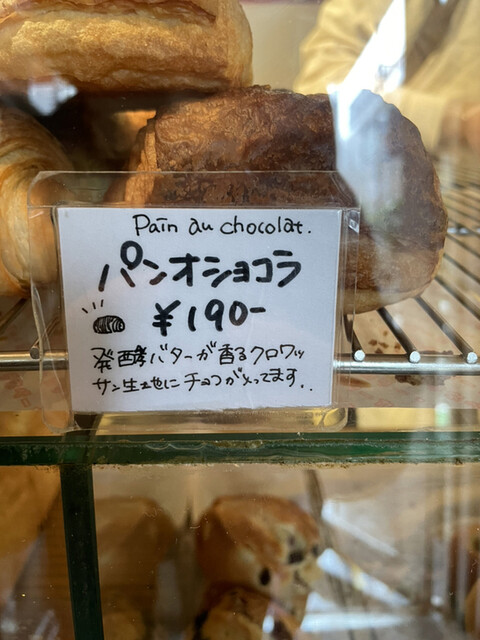 Pain au chocolat.
パンオショコラ
¥190-
発酵バターが香るクロワッ
サン生地にチョコが入ってます..